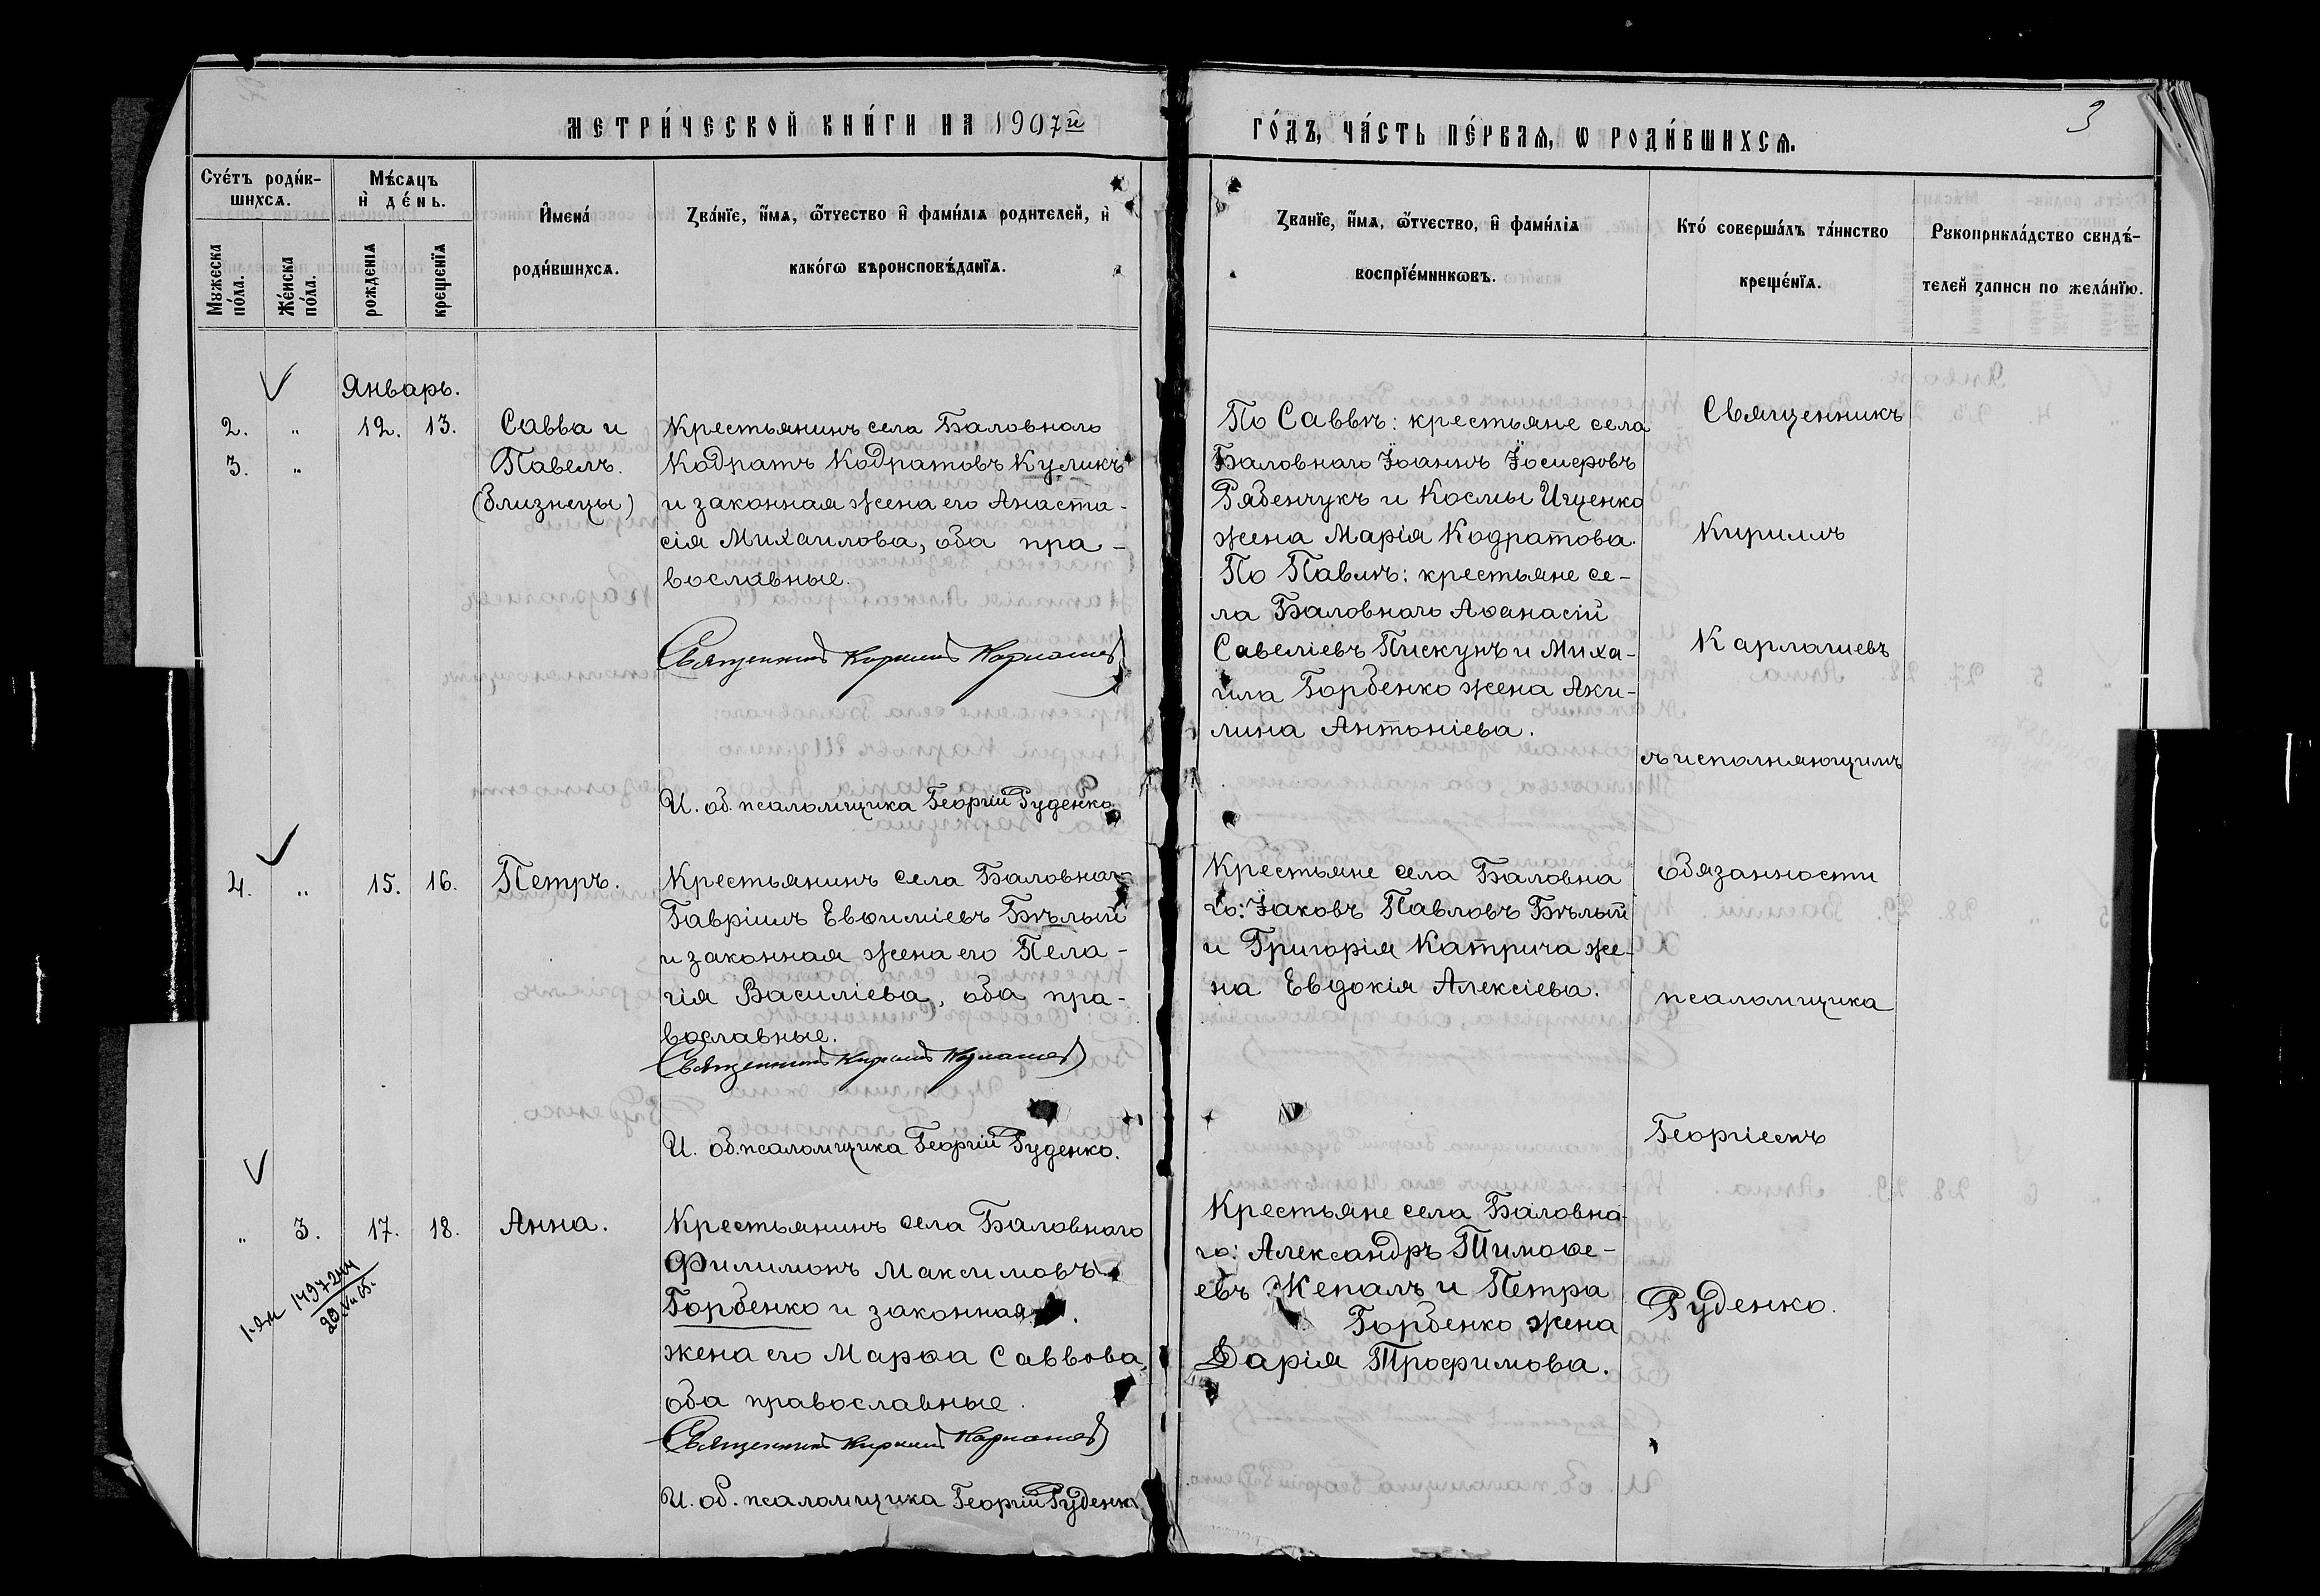 МЕТРИ́ЧЕСКОЙ КНИ́ГИ НА 1907й
ГО́ДЪ, ЧА́СТЬ ПЕ́РВАѦ, Ѡ РОДИ́ВШИХСѦ.
3
Счéтъ роди́в-
шихсѧ.
Мꙋжеска по́ла.
Же́нска по́ла.
Мѣ́сѧцъ
и҆ де́нь.
рожденїѧ
крещенїѧ
И҆мена́
роди́вшихсѧ.
Зва́нїе, и҆́мѧ, ѻ҆́тчество и҆ фами́лїѧ родителей, и҆
како́гѡ вѣроисповѣ́данїѧ.
Званїе, и҆́мѧ, ѻ҆́тчество, и҆ фами́лїѧ
воспрїе́мникѡвъ.
Кто́ соверша́лъ та́инство
креще́нїѧ.
Рꙋкоприкла́дство свидѣ́-
телей записи по жела́нїю.
Январь.
2. „ 12. 13. Савва и
3. „ Павелъ.
(близнецы)
Крестьянинъ села Баловнаго
Кодратъ Кодратовъ Куликъ
и законная жена его Анаста-
сія Михаилова, оба пра-
вославные.
Священникъ Кириллъ Карлашевъ
И. об. псаломщика Георгій Руденко
По Саввѣ: крестьяне села
Баловнаго Іоаннъ Іосифовъ
Рябенчукъ и Космы Ищенко
жена Марія Кодратова.
По Павлѣ: крестьяне се-
ла Баловнаго Аѳанасій
Савеліевъ Пискунъ и Миха-
ила Горбенко жена Аки-
лина Антоніева.
Священникъ
Кириллъ
Карлашевъ
съ исполняющимъ
обязанности
псаломщика
Георгіемъ
Руденко.
4. „ 15. 16. Петръ.
Крестьянинъ села Баловнаго
Гавріилъ Евѳиміевъ Бѣлый
и законная жена его Пела-
гія Василіева, оба пра-
вославные.
Священникъ Кириллъ Карлашевъ
И. об. псаломщика Георгій Руденко.
Крестьяне села Баловна
го: Іаковъ Павловъ Бѣлый
и Григорія Катрича же-
на Евдокія Алексіева.
„ 3. 17. 18. Анна.
Крестьянинъ села Баловнаго
Филимонъ Максимовъ
Горбенко и законная
жена его Марѳа Саввова,
оба православные.
Священникъ Кириллъ Карлашевъ
И. об. псаломщика Георгій Руденко
Крестьяне села Баловна-
го: Александръ Тимоѳе-
евъ Жепалъ и Петра
Горбенко жена
Дарія Трофимова.